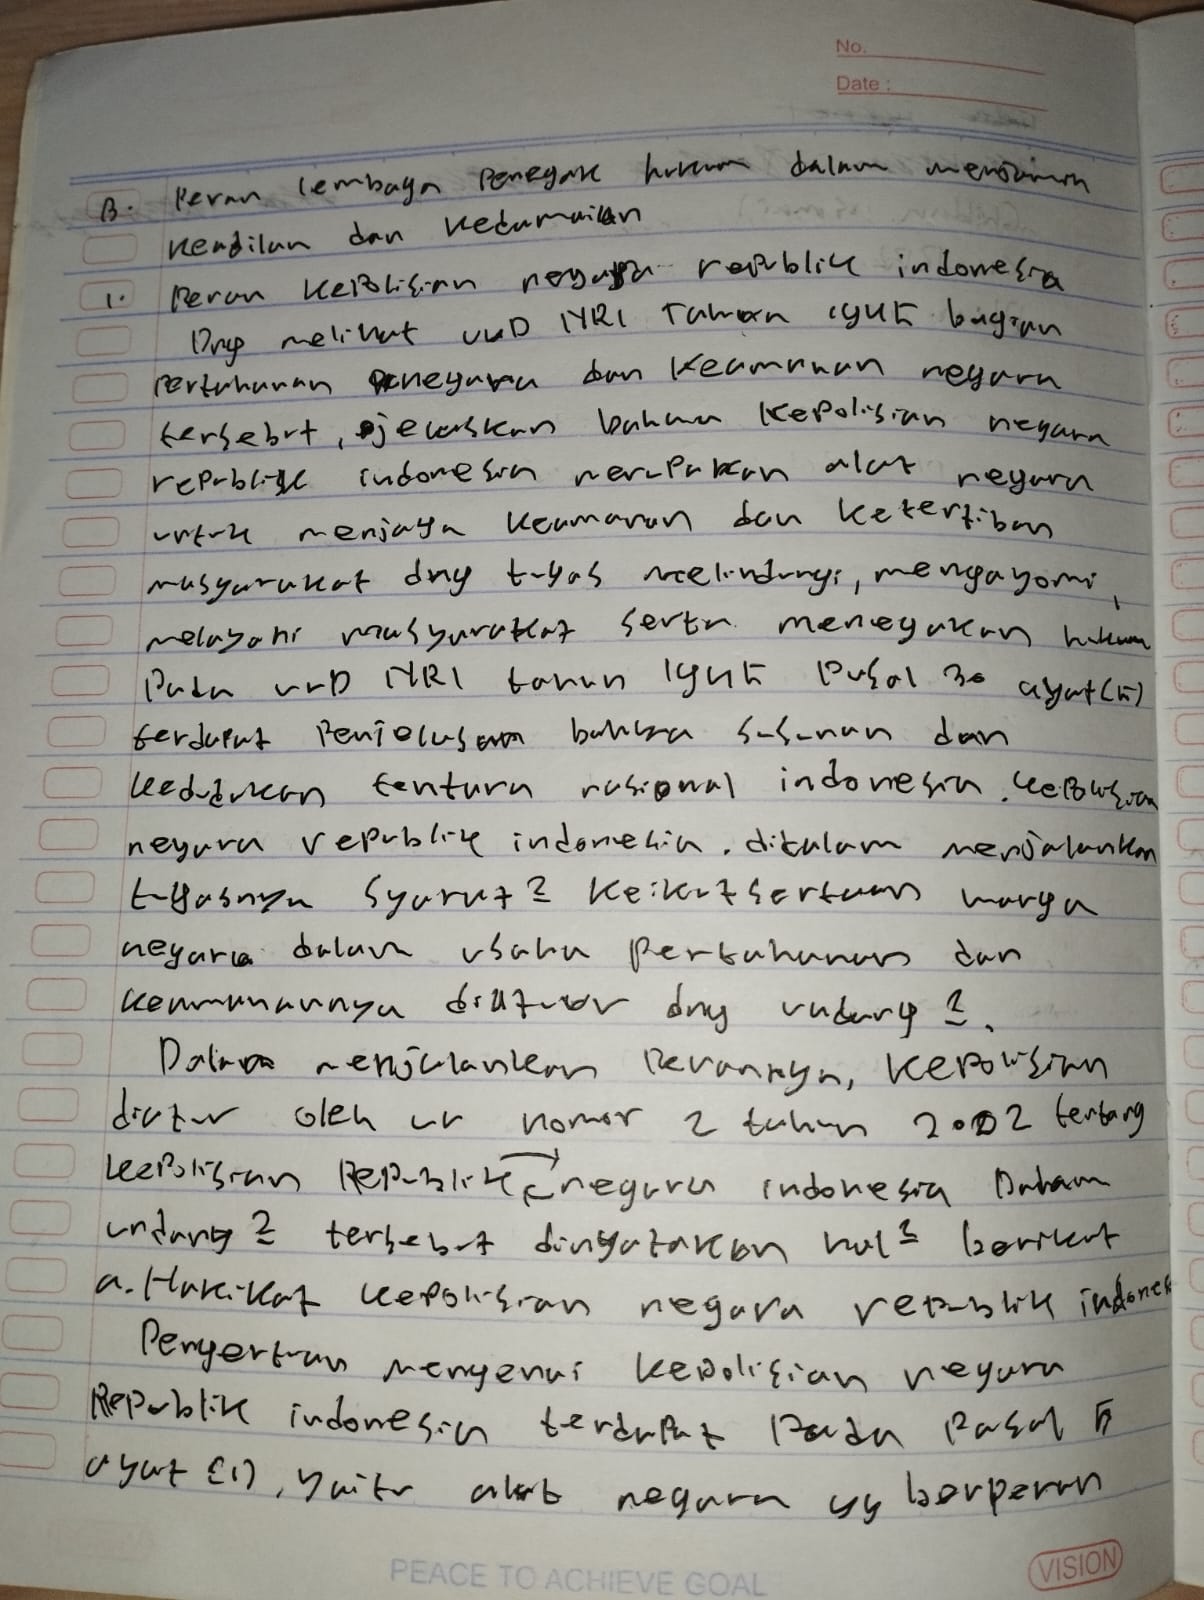 No.
Date :
B. Peran lembaga Penegak hukum dalam menjamin
keadilan dan kedamaian
1. Peran Kepolisian negara republik indonesia
Dng melihat UUD NRI Tahun 1945 bagian
Pertahanan negara dan Keamanan negara
tersebut, jelaskan bahwa Kepolisian negara
republik indonesia merupakan alat negara
untuk menjaga keamanan dan ketertiban
masyarakat dng tugas melindungi, mengayomi,
melayani masyarakat serta menegakan hukum
Pada UUD NRI tahun 1945 Pasal 30 ayat (5)
terdapat Penjelasan bahwa susunan dan
kedudukan tentara nasional indonesia. Kepolisian
negara republik indonesia. didalam menjalankan
tugasnya Syarat2 keikutsertaan warga
negara dalam usaha Pertahanan dan
keamanannya diatur dng undang2.
Dalam menjalankan Perannya, Kepolisian
diatur oleh UU nomor 2 tahun 2002 tentang
kepolisian Republik negara indonesia Dalam
undang2 tersebut dinyatakan hal2 berikut
a. Hakikat kepolisian negara republik indones
Pengertian mengenai kepolisian negara
Republik indonesia terdapat Pada Pasal 5
ayat (1), yaitu alat negara yg berperan
PEACE TO ACHIEVE GOAL
VISION